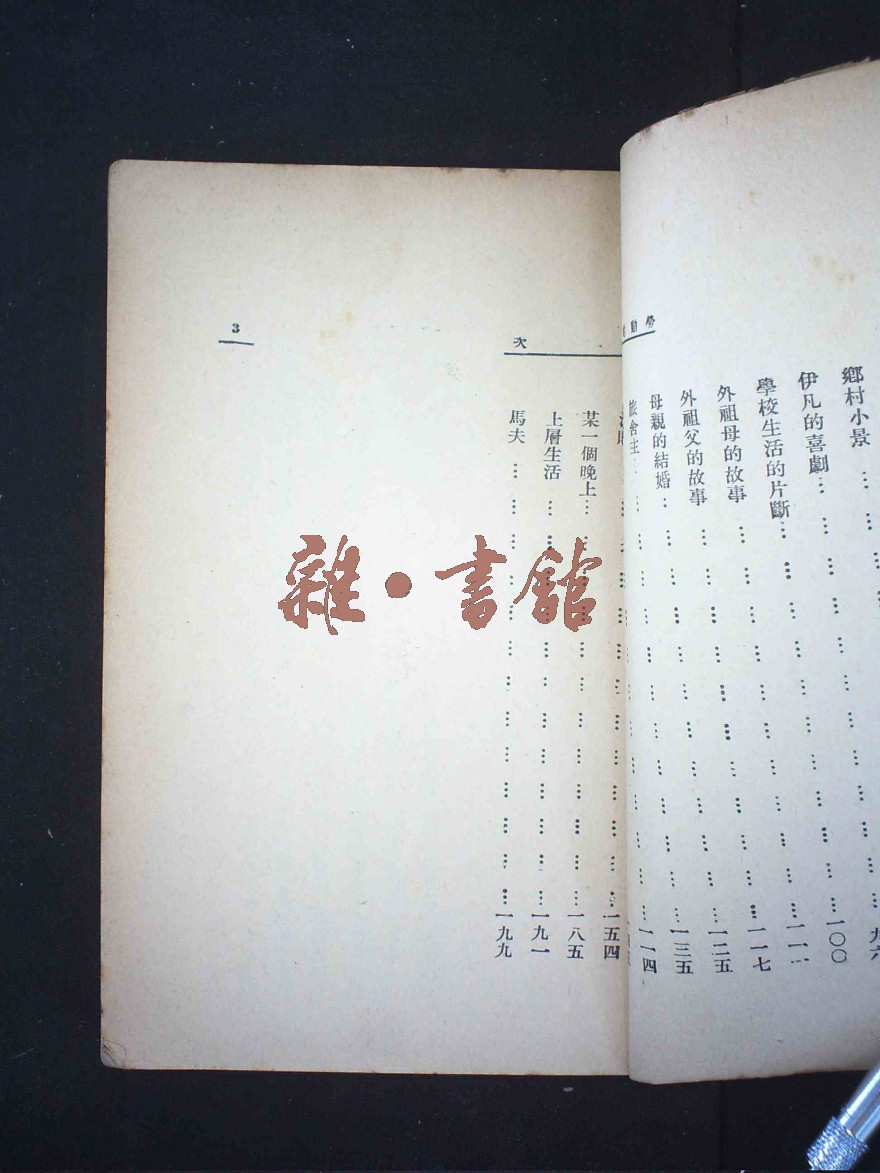 勞動
鄉村小景………………九六
伊凡的喜劇………………一〇〇
學校生活的片斷………………一一
外祖母的故事………………一一七
外祖父的故事………………一二五
母親的結婚………………一三五
旅舍主………………一一四
次
………………一五四
某一個晚上………………一八五
上層生活………………一九一
馬夫………………一九九
3
雜·書館